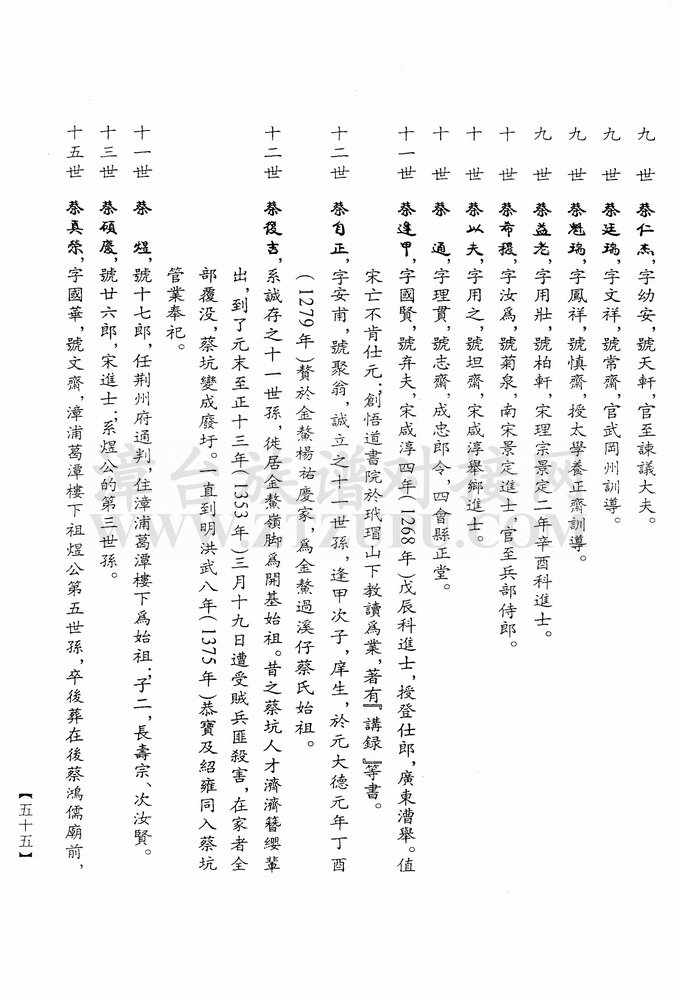 九世 蔡仁杰，字幼安，號天軒，官至諫議大夫。
九世 蔡廷瑞，字文祥，號常齋，官武岡州訓導。
九世 蔡魁瑞，字鳳祥，號慎齋，授太學養正齋訓導。
九世 蔡益老，字用壯，號柏軒，宋理宗景定二年辛酉科進士。
十世 蔡希稷，字汝爲，號菊泉，南宋景定進士官至兵部侍郎。
十世 蔡以夫，字用之，號坦齋，宋咸淳舉鄉進士。
十世 蔡通，字理貫，號志齋，成忠郎令，四會縣正堂。
十一世 蔡逢甲，字國賢，號弃夫，宋咸淳四年(1268年)戊辰科進士，授登仕郎，廣東漕舉。值
宋亡不肯仕元；創悟道書院於玳瑁山下教讀爲業，著有『講録』等書。
十二世 蔡自正，字安甫，號聚翁，誠立之十一世孫，逢甲次子，庠生，於元大德元年丁酉
(1279年)贅於金鰲楊祐慶家，爲金鰲過溪仔蔡氏始祖。
十二世 蔡復吉，系誠存之十一世孫，徙居金鰲嶺脚爲開基始祖。昔之蔡坑人才濟濟簪纓輩
出，到了元末至正十三年(1353年)三月十九日遭受賊兵匪殺害，在家者全
部覆没，蔡坑變成廢圩。一直到明洪武八年(1375年)恭寶及紹雍同入蔡坑
管業奉祀。
十一世 蔡煜，號十七郎，任荆州府通判，住漳浦葛潭樓下爲始祖；子二，長壽宗、次汝賢。
十三世 蔡碩慶，號廿六郎，宋進士；系煜公的第三世孫。
十五世 蔡真榮，字國華，號文齋，漳浦葛潭樓下祖煜公第五世孫，卒後葬在後蔡鴻儒廟前，
【五十五】
章台族谱对接网
www.ztzupu.com